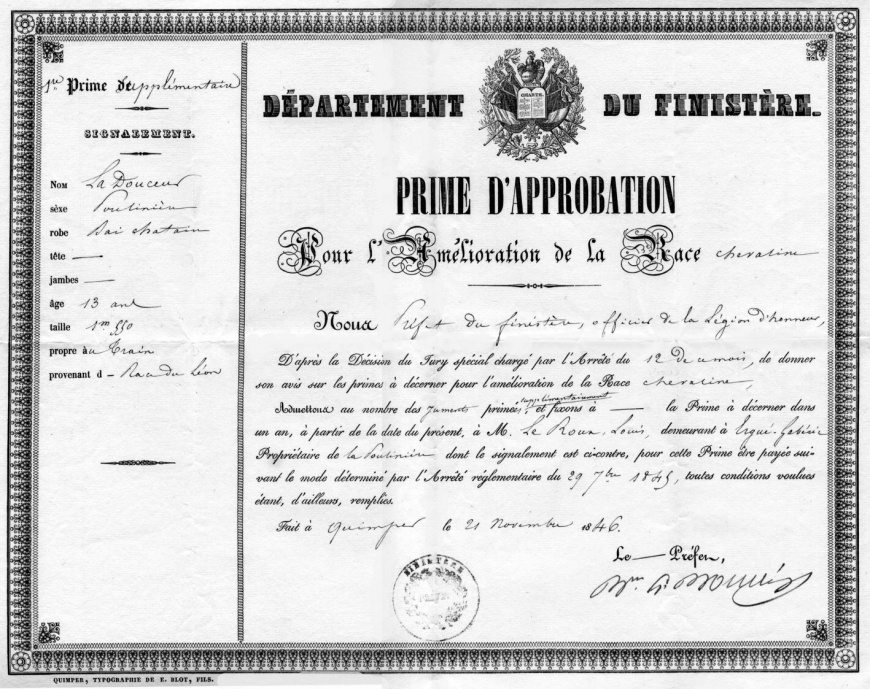 1re Prime Supplémentaire
SIGNALEMENT.
Nom La Douceur
sèxe Poulinière
robe Bai chatain
tête —
jambes —
âge 13 ans
taille 1m 550
propre au Train
provenant d — Race du Léon
DÉPARTEMENT DU FINISTÈRE.
CHARTE.
PRIME D'APPROBATION
Pour l'Amélioration de la Race chevaline
Nous Préfet du finistère, officier de la Légion d'honneur,
D'après la Décision du Jury spécial chargé par l'Arrêté du 12 de ce mois, de donner
son avis sur les primes à décerner pour l'amélioration de la Race chevaline,
supplémentairement
Admettons au nombre des juments primées et fixons à — la Prime à décerner dans
un an, à partir de la date du présent, à M. Le Roux Louis, demeurant à Ergué-Gabéric
Propriétaire de la Poulinière dont le signalement est ci-contre, pour cette Prime être payée sui-
vant le mode déterminé par l'Arrêté réglementaire du 29 7bre 1845, toutes conditions voulues
étant, d'ailleurs, remplies.
Fait à Quimper le 21 Novembre 1846.
Le — Préfet,
FINISTÈRE
QUIMPER, TYPOGRAPHIE DE E. BLOT, FILS.